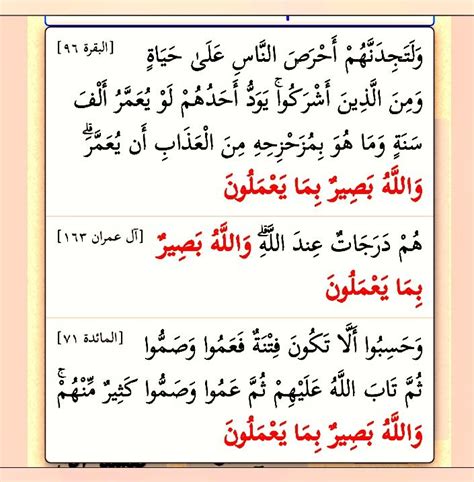 وَلَتَجِدَنَّهُمْ أَحْرَصَ النَّاسِ عَلَىٰ حَيَاةٍ [البقرة ٩٦]
وَمِنَ الَّذِينَ أَشْرَكُوا ۚ يَوَدُّ أَحَدُهُمْ لَوْ يُعَمَّرُ أَلْفَ
سَنَةٍ وَمَا هُوَ بِمُزَحْزِحِهِ مِنَ الْعَذَابِ أَن يُعَمَّرَ ۗ
وَاللَّهُ بَصِيرٌ بِمَا يَعْمَلُونَ
هُمْ دَرَجَاتٌ عِندَ اللَّهِ ۗ وَاللَّهُ بَصِيرٌ [آل عمران ١٦٣]
بِمَا يَعْمَلُونَ
وَحَسِبُوا أَلَّا تَكُونَ فِتْنَةٌ فَعَمُوا وَصَمُّوا [المائدة ٧١]
ثُمَّ تَابَ اللَّهُ عَلَيْهِمْ ثُمَّ عَمُوا وَصَمُّوا كَثِيرٌ مِّنْهُمْ ۚ
وَاللَّهُ بَصِيرٌ بِمَا يَعْمَلُونَ